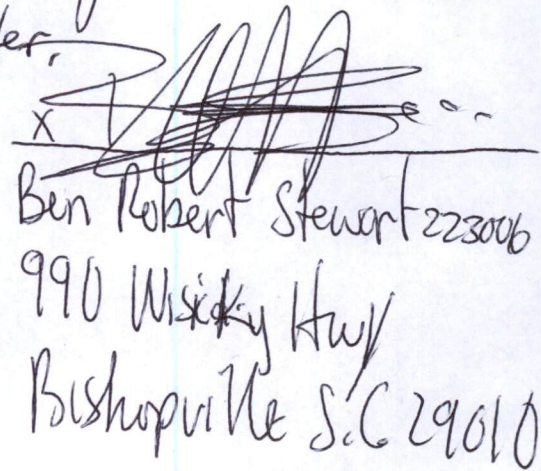 er,
X
Ben Robert Stewart 223006
990 Wisicky Hwy
Bishopville S.C 29010